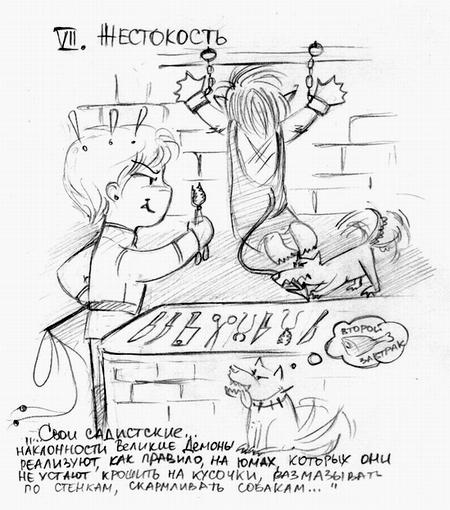 VII. ЖЕСТОКОСТЬ
ВТОРОЙ
ЗАВТРАК
"...Свои садистские...
наклонности Великие Демоны
реализуют, как правило, на юмах, которых они
не устают крошить на кусочки, размазывать
по стенкам, скармливать собакам..."